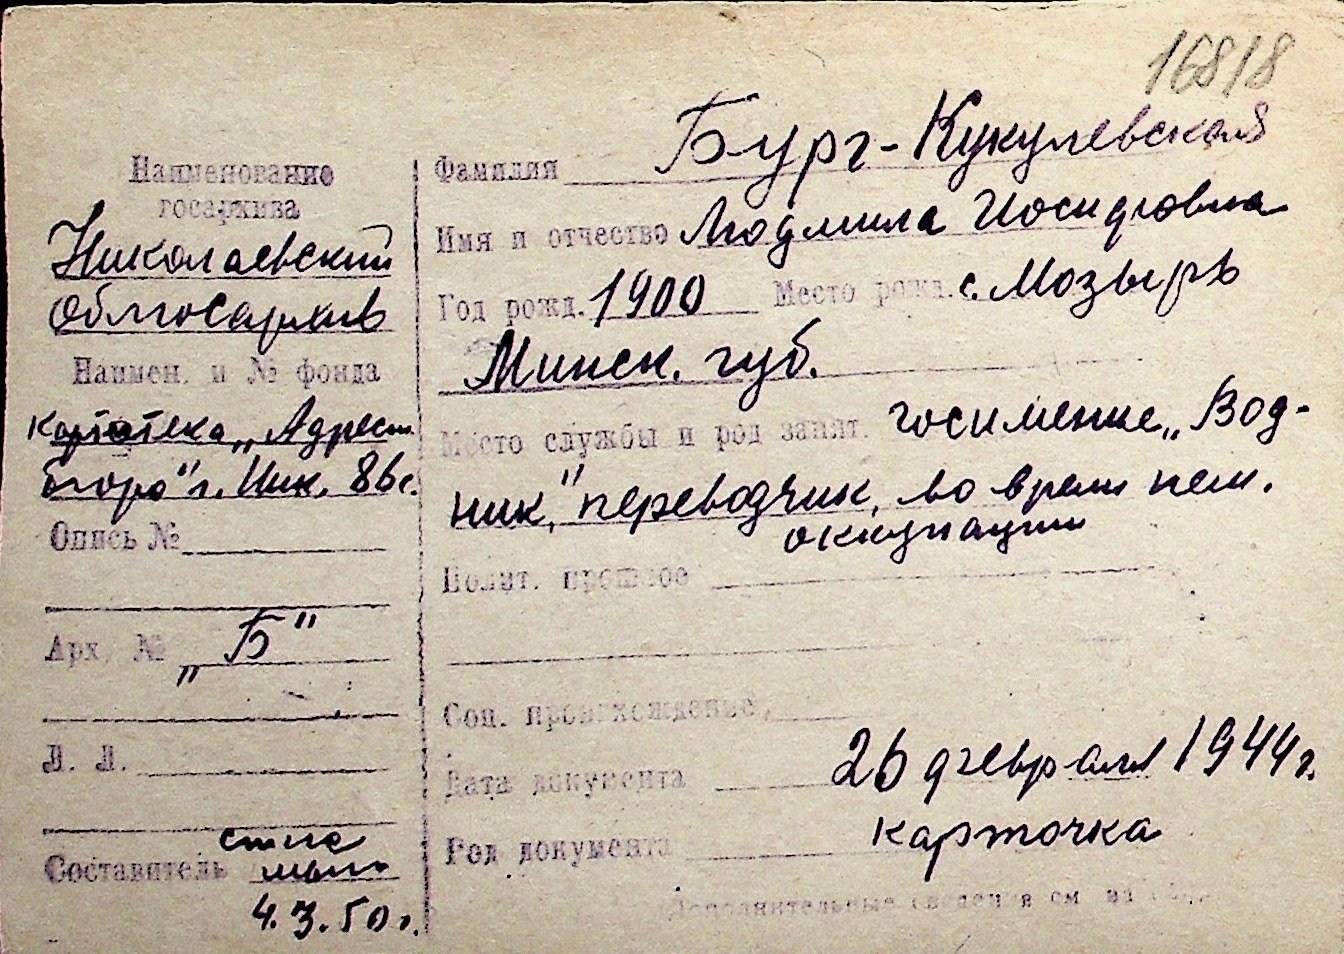 16818
Наименование
госархива
Николаевский
Облгосархив
Наимен. и № фонда
картотека „Адресн.
бюро" г. Ник. 86 с.
Опись №
Арх. №
„Б"
Л. Л.
Составитель
4.3.50 г.
Фамилия Бург-Кукулевская
Имя и отчество Людмила Иосифовна
Год рожд. 1900 Место рожд. с. Мозырь
Минск. губ.
Место службы и род занят. госимение „Вод-
ник," переводчик, во время нем.
оккупации
Полит. прошлое
Соц. происхождение
Дата документа 26 февраля 1944 г.
Род документа карточка
Дополнительные сведения см. на